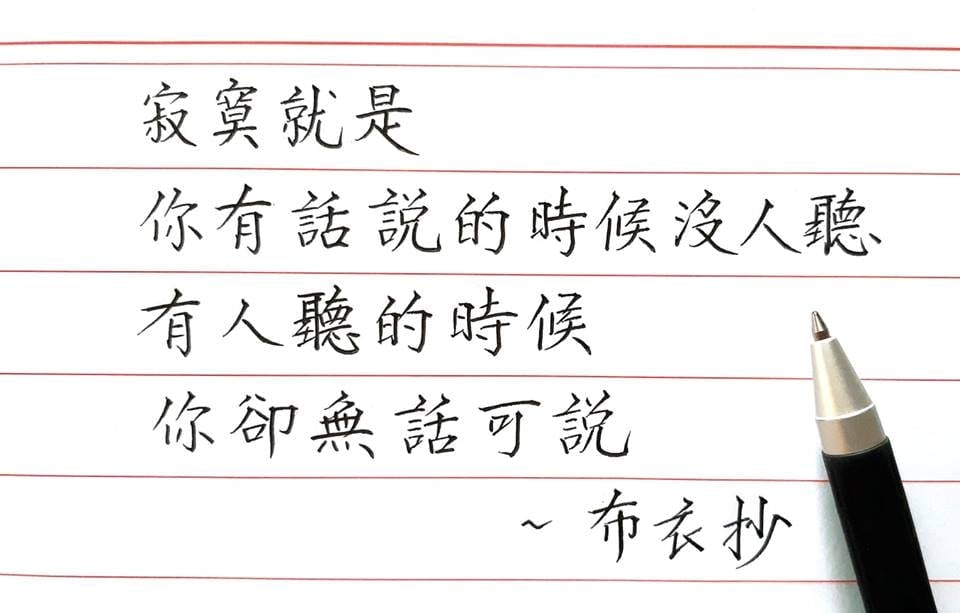 寂寞就是
你有話說的時候沒人聽
有人聽的時候
你卻無話可說
~ 布衣抄